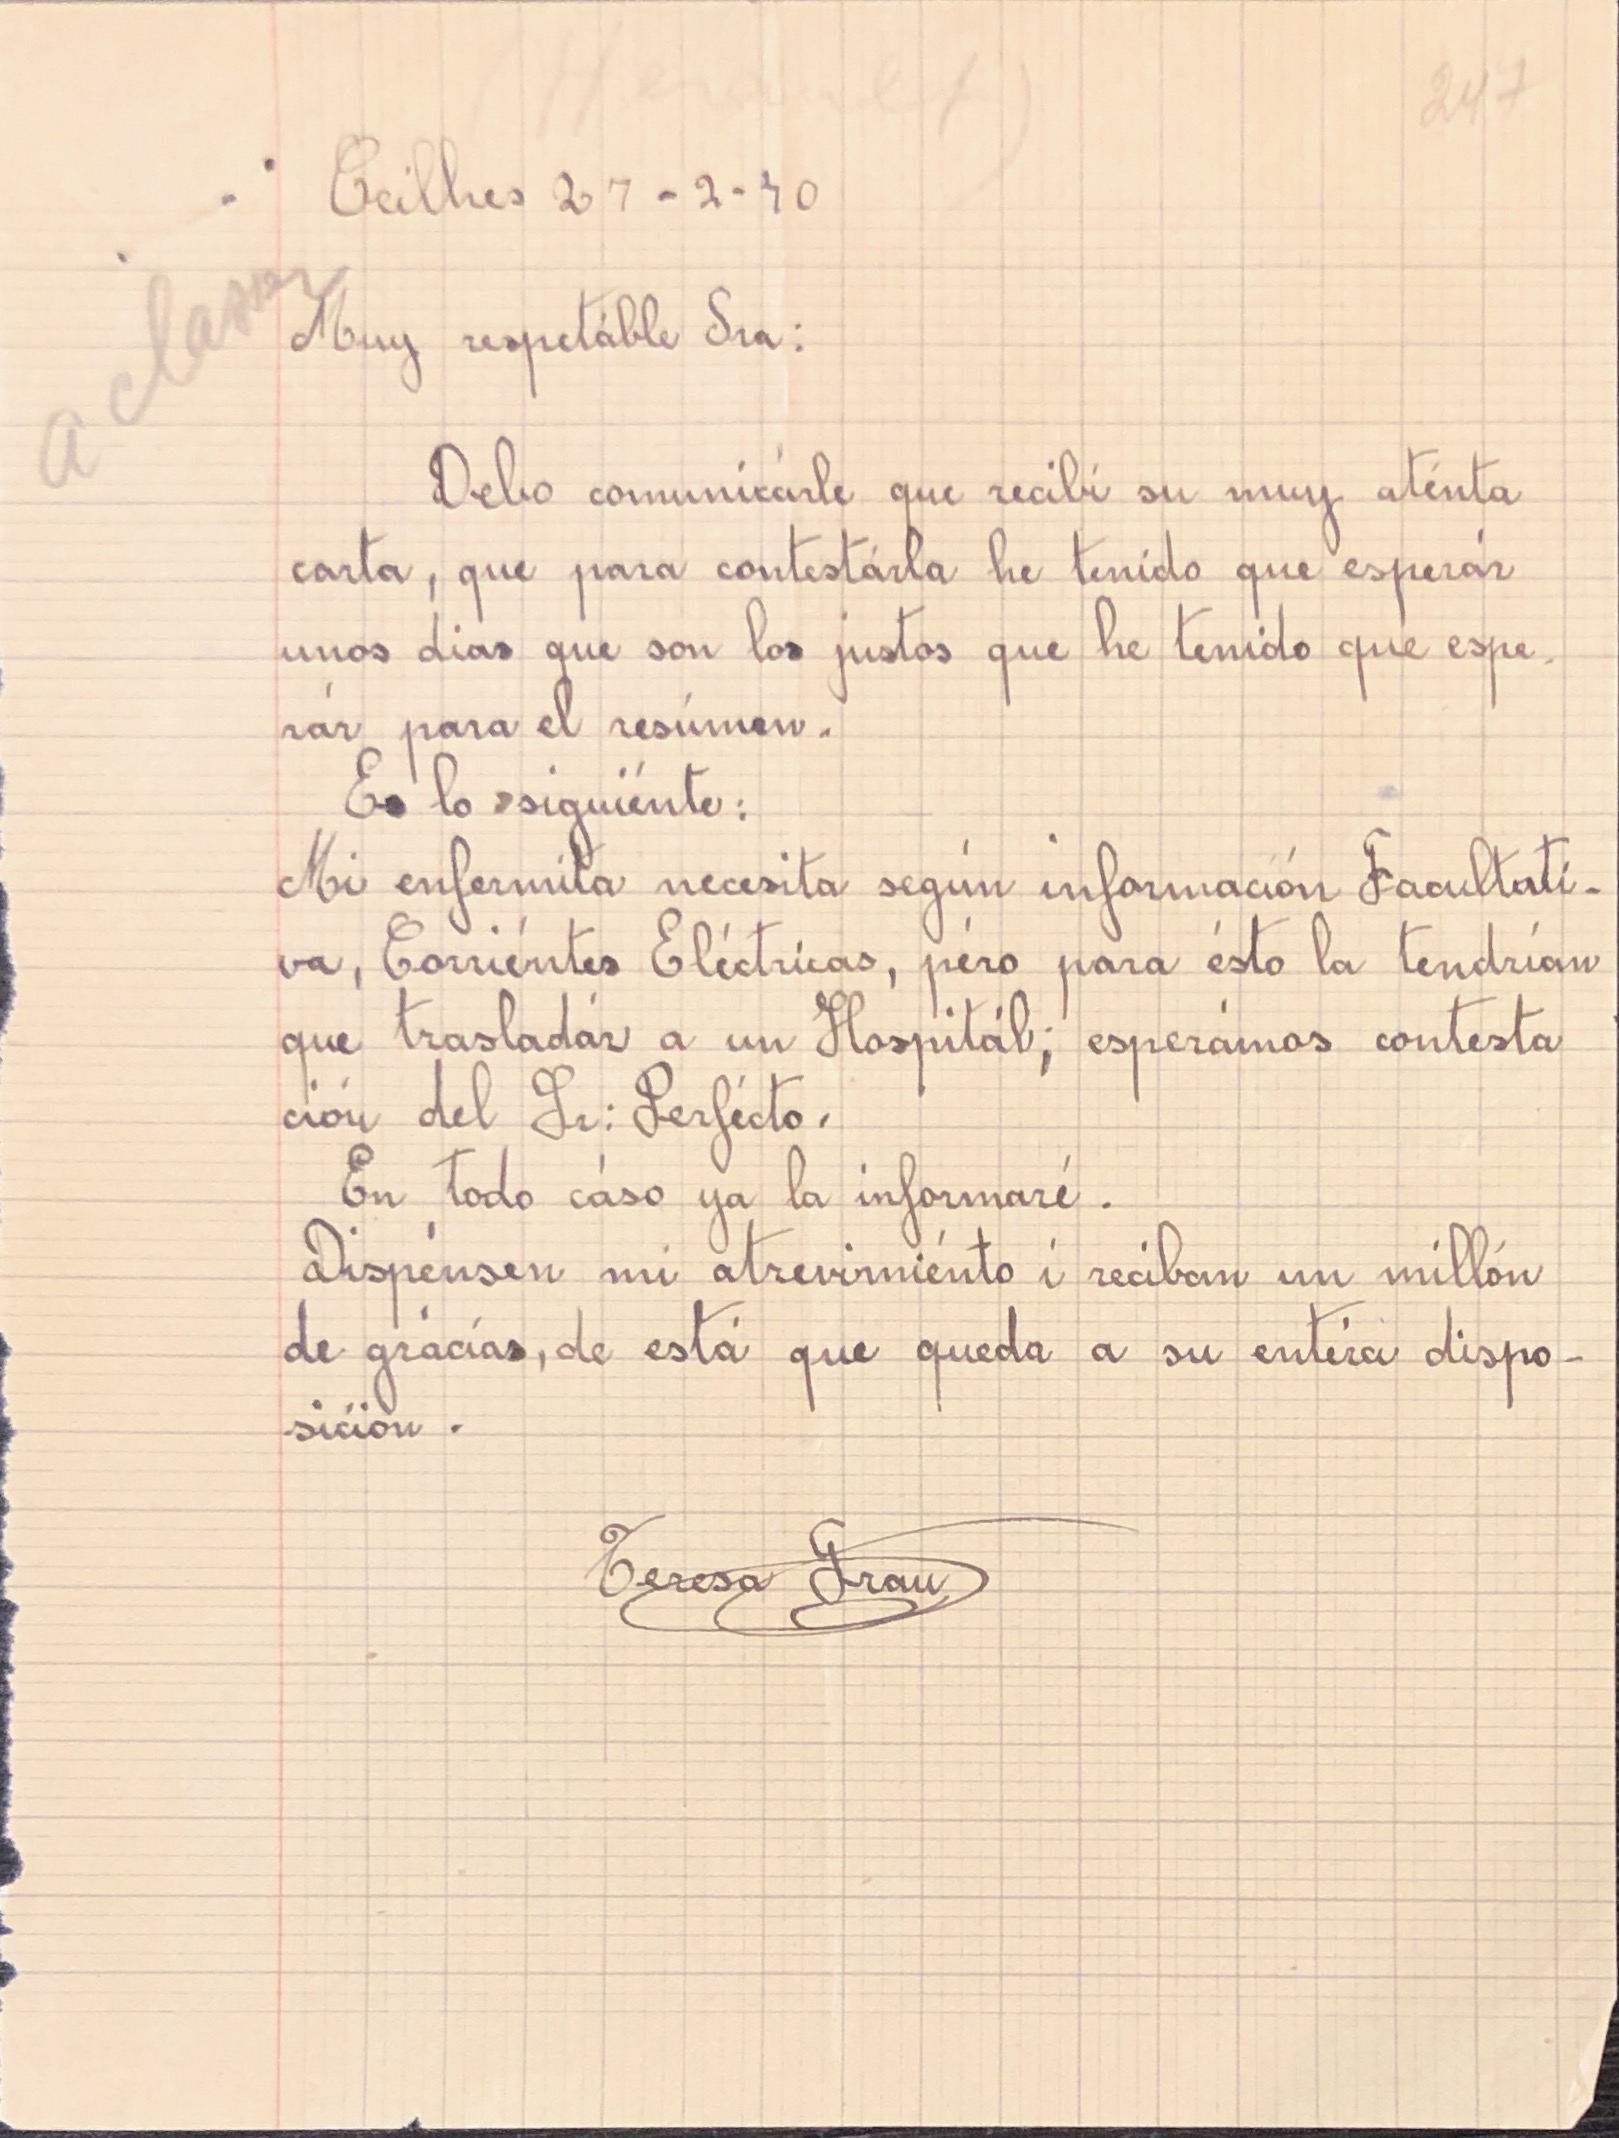 247
Ceilhes 27-2-40
a classer
Muy respetáble Sra:
Debo comunicárle que recibí su muy aténta
carta, que para contestárla he tenido que esperár
unos dias que son los justos que he tenido que espe-
rár para el resúmen.
Es lo siguiénte:
Mi enfermita necesita según información Facultati-
va, Corriéntes Eléctricas, péro para ésto la tendrían
que trasladár a un Hospitál; esperámos contesta
ción del Sr: Perfécto.
En todo cáso ya la informaré.
Dispénsen mi atrevimiénto i reciban un millón
de grácias, de está que queda a su entéra dispo-
sición.
Teresa Grau